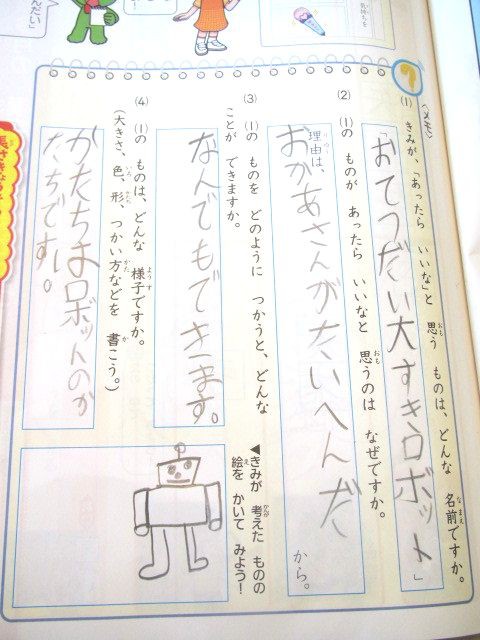 んだい」
気持ちを
7
〈メモ〉
(1) きみが、「あったら いいな」と 思う ものは、どんな 名前ですか。
おも
なまえ
「おてつだい大すきロボット」
(2) (1)の ものが あったら いいなと 思うのは なぜですか。
おも
理由は、
りゆう
おかあさんがたいへんだ
から。
(3) (1)の ものを どのように つかうと、どんな
ことが できますか。
なんでもできます。
(4) (1)の ものは、どんな 様子ですか。
ようす
(大きさ、色、形、つかい方などを 書こう。)
いろ
かたち
かた
か
かたちはロボットのか
たちです。
◀きみが 考えた ものの
かんが
絵を かいて みよう!
え